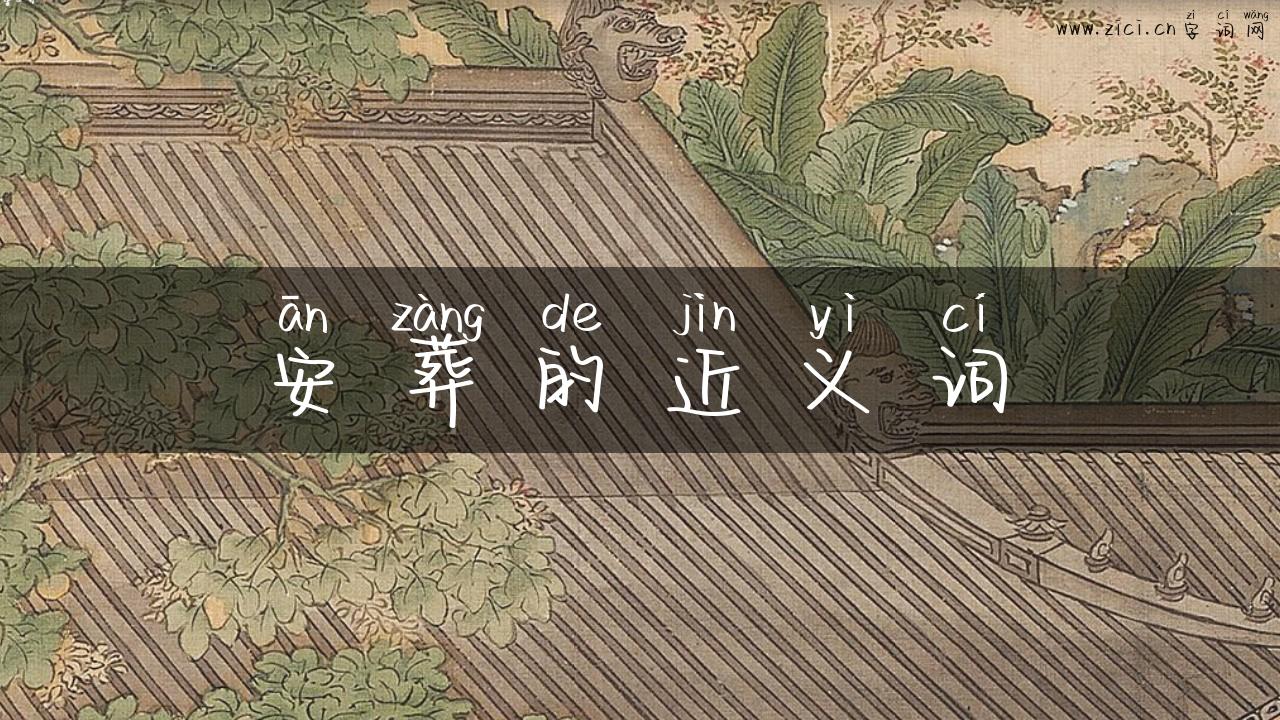 zì cí wǎng
www.zici.cn 字 词 网
ān zàng de jìn yì cí
安 葬 的 近 义 词